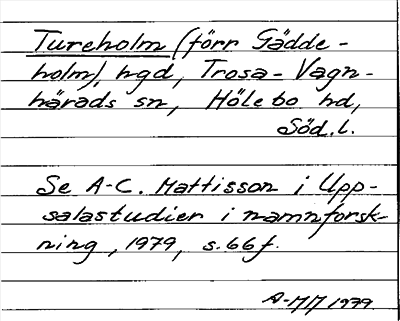 Tureholm (förr Gädde-
holm), hgd, Trosa-Vagn-
härads sn, Hölebo hd,
Söd.l.
Se A-C. Mattisson i Upp-
salastudier i namnforsk-
ning, 1979, s.66f.
A-MM 1979